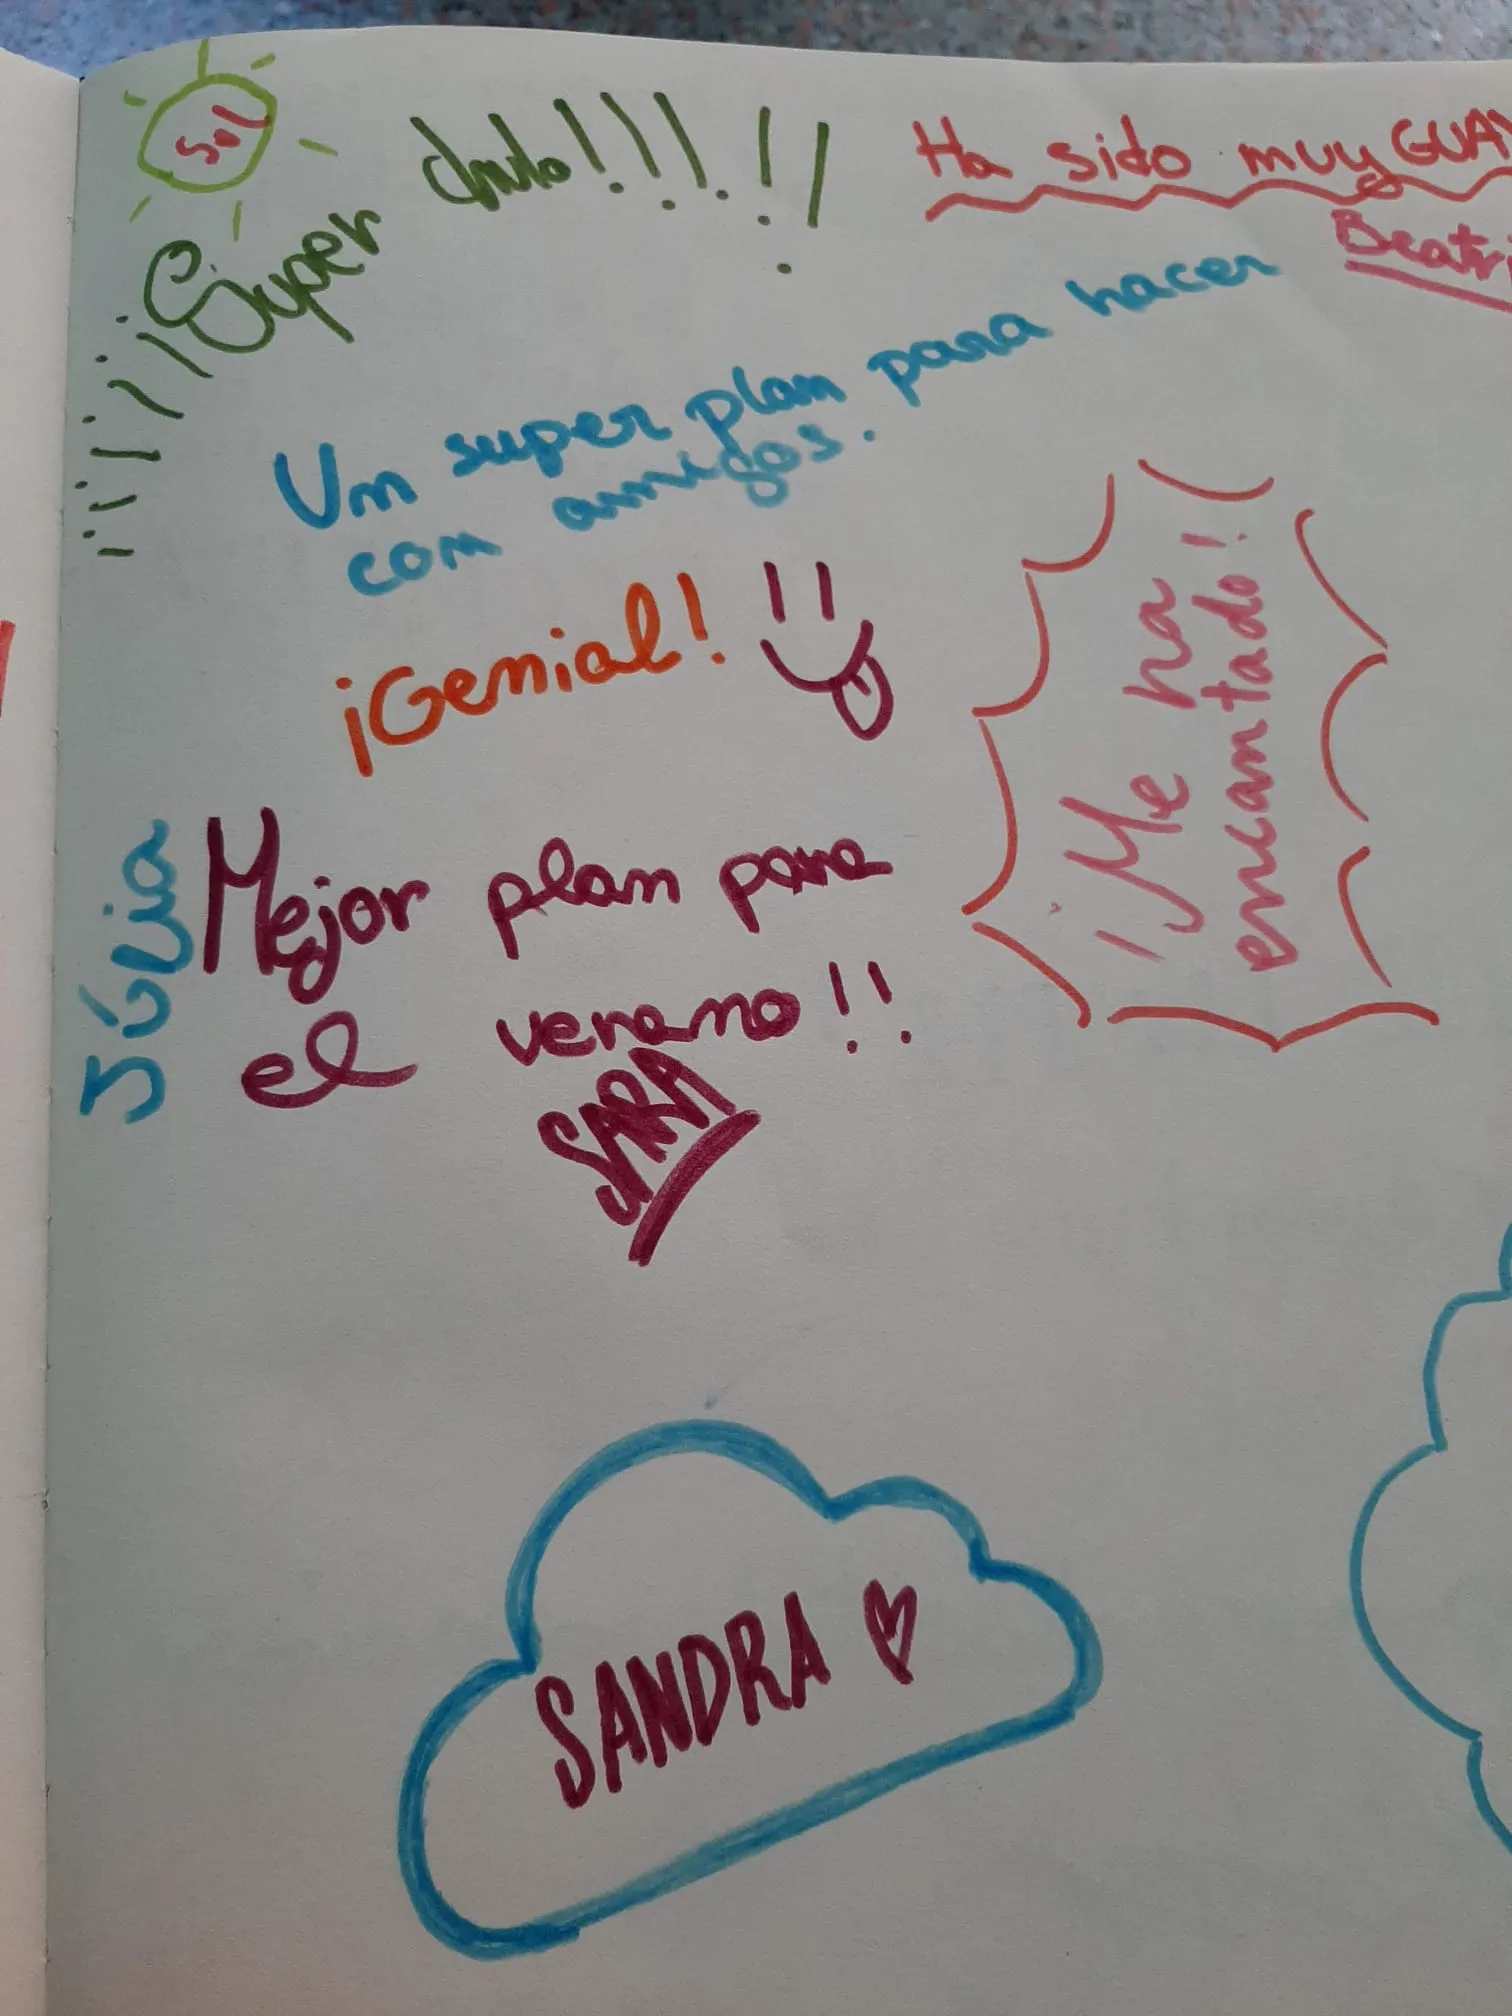 Sol
¡¡¡¡¡Super chulo!!!!!!
Ha sido muy GUA
Beatri
Un super plan para hacer
con amigos.
¡Genial!
¡Me ha
encantado!
Júlia
Mejor plan para
el verano!!
SARA
SANDRA